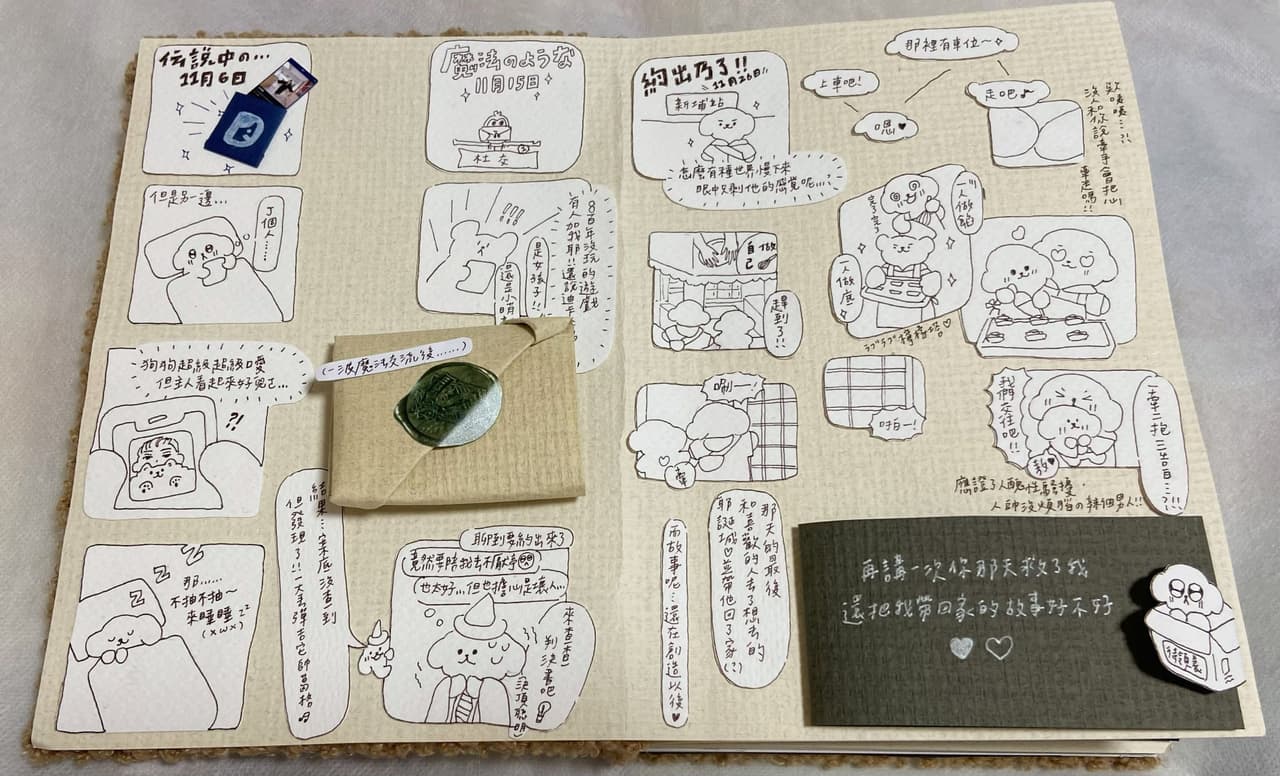 伝説中の…
11月6日
但是另一邊…
J個人……
狗狗超級超級口愛
但主人看起來好兇ㄛ…
?!
z z z
那……
不抽不抽~
來睡睡 z z
(xwx)
魔法のような
11月15日
社交
!!!
8百年沒玩的遊戲
有人加我耶!!還說迪
是女孩子!!
還是小萌
(一波魔法交流後……)
結果…案底沒查到
但發現了!!一大
聊到要約出來了
竟然要陪我去不厭亭
也太好…但也擔心是壞人…
來查查
判決書吧
(決頂聰明)
約出乃了!!
11月26日
新埔站
怎麼有種世界慢下來
眼中只剩他的感覺呢…?
那裡有車位~
上車吧!
嗯♥
走吧♪
欸咦咦…?!
沒人和你說牽手會把心
牽走嗎!!
自己做
趕到了!!
一人做餡
完了完了
一人做底
ラブラブ揍揍塔♡
唰—!
牽
啪—!
我們交往吧!!
教♥
一牽二抱三告白…?!!
應證了人醜性騷擾,
人帥沒煩腦の辣個男人!!
那天的最後
和喜歡的人去了想去的
耶誕城♡並帶他回了家(?)
而故事呢…還在創造以後♥
再講一次你那天救了我
還把我帶回家的故事好不好
♥ ♡
待領養